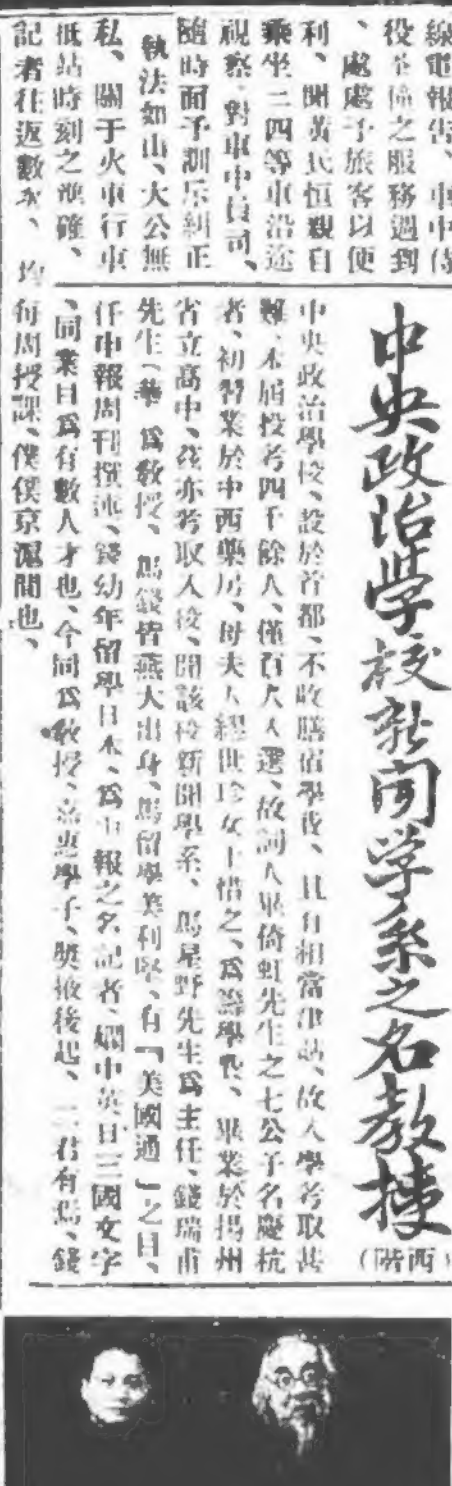 線電報告、車中侍
役茶僮之服務週到
、處處予旅客以便
利、聞黃氏恒親自
乘坐三四等車沿途
視察、對車中員司、
隨時面予訓斥糾正
執法如山、大公無
私、關于火車行車
抵站時刻之準確、
記者往返數次、均
中央政治学校新闻学系之名教授
(西階)
中央政治學校、設於首都、不收膳宿學費、且有相當津貼、故入學考取甚
難、本屆投考四千餘人、僅百人選、故詞人畢倚虹先生之七公子名慶杭
者、初習業於中西藥房、母夫人繆世珍女士惜之、爲籌學費、畢業於揚州
省立高中、茲亦考取入校、聞該校新聞學系、馬星野先生爲主任、錢瑞甫
先生(華 爲教授、馬錢皆燕大出身、馬留學美利堅、有「美國通」之目、
任申報周刊撰述、錢幼年留學日本、爲申報之名記者、嫻中英日三國文字
、同業目爲有數人才也、今同爲教授、嘉惠學子、奬掖後起、二君有焉、錢
每周授課、僕僕京滬間也、